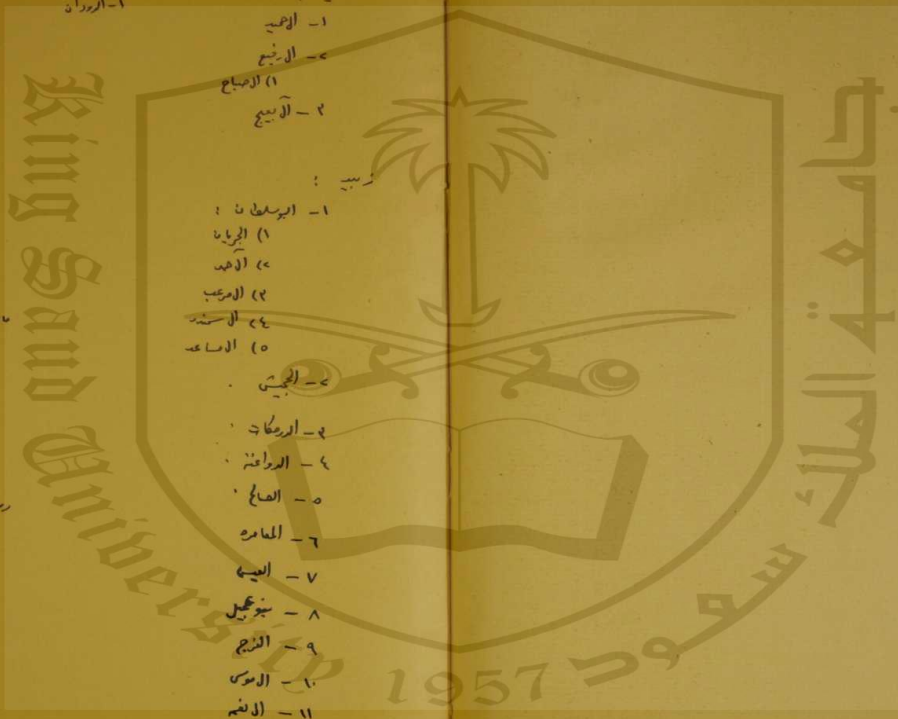 ١- الروдан
١- آل حميد
٢- آل رفيع
١) آل صباح
٣- آل بعيج
زبيد :
١- البوسلطان :
١) الجريان
٢) آل حمد
٣) آل مرعب
٤) آل سمندر
٥) آل مساعد
٢- الجحيش .
٣- الدرمكات .
٤- الدواغنة .
٥- الصالح .
٦- المعامره
٧- العيسى
٨- بنو عجيل
٩- الفرج
١٠- آل موسى
١١-
King Saud University
1957
جامعة الملك سعود